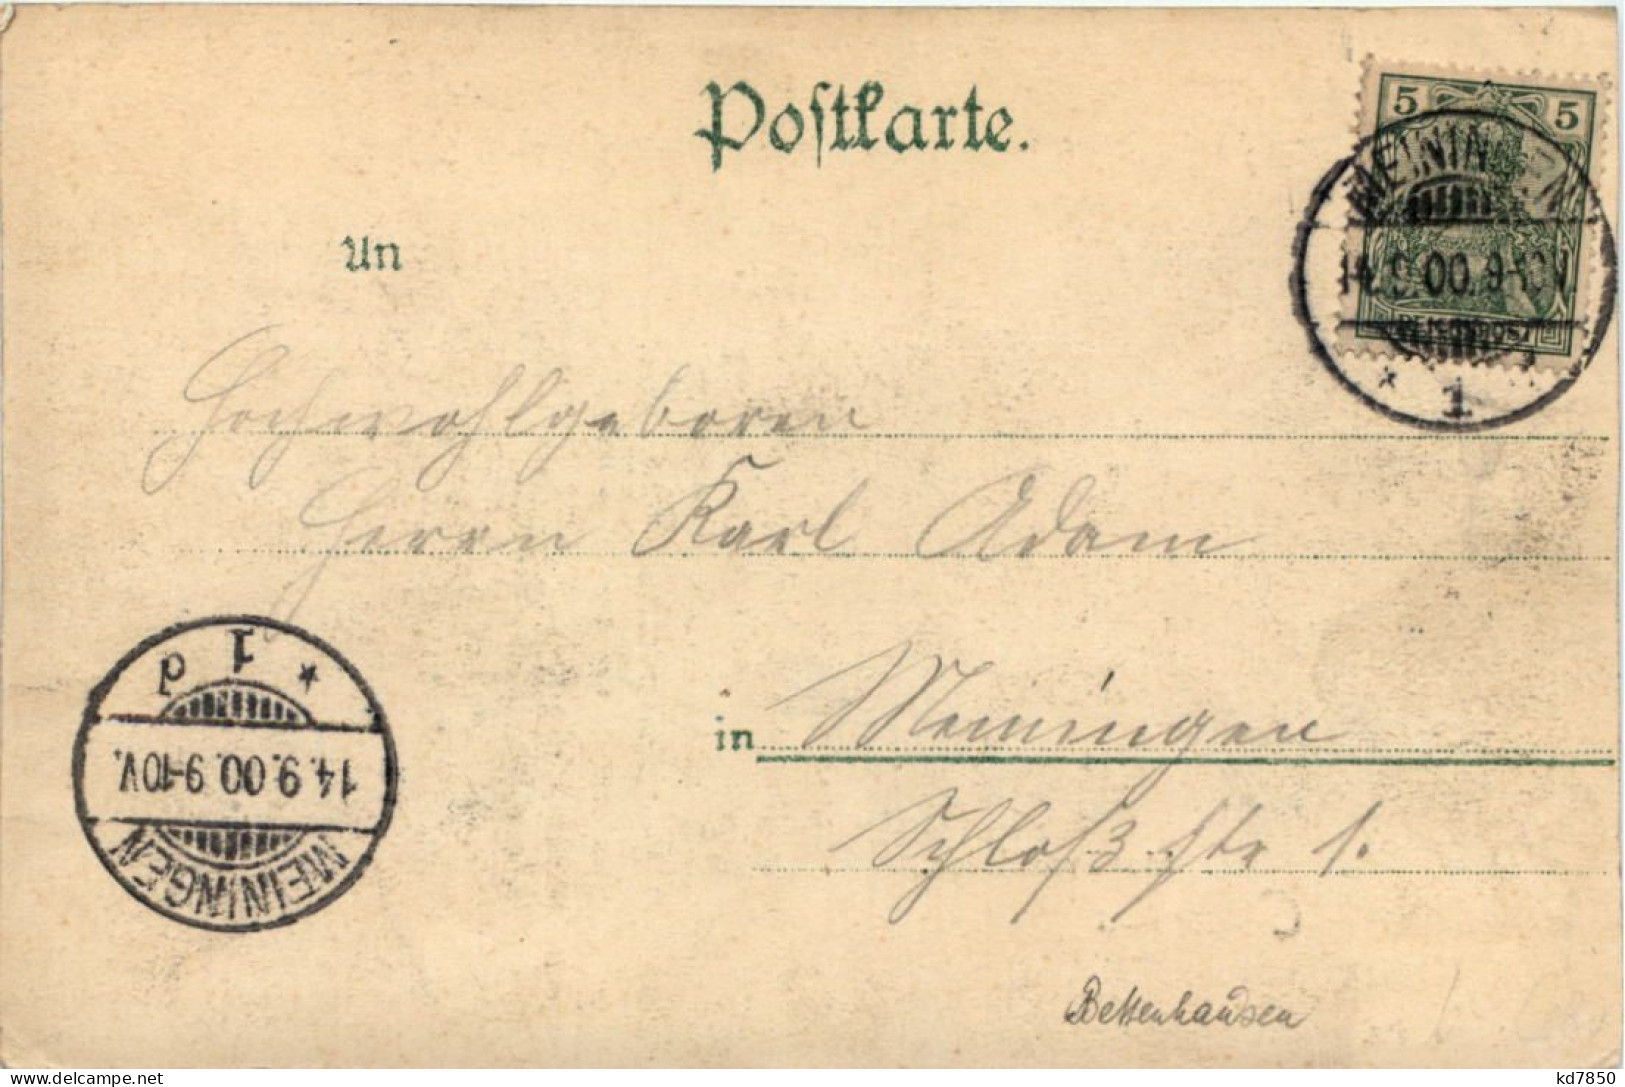 Postkarte.
5 5
MEININGEN
14.9.00.9-10V
REICHSPOST
* 1
An
Hochwohlgeboren
Herrn Karl Adam
in Meiningen
Schloßstr 1.
* 1 d
14.9.00.9-10V.
MEININGEN
Bettenhausen
kd7850